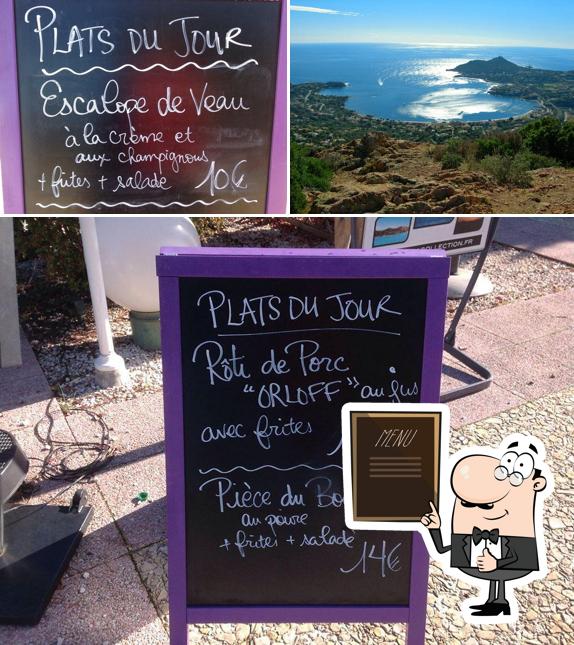 PLATS DU JOUR
Escalope de Veau
à la crème et
aux champignons
+ frites + salade 10€
COLLECTION.FR
PLATS DU JOUR
Rôti de Porc
"ORLOFF" au jus
avec frites
Pièce du
au poivre
+ frites + salade
14€
MENU